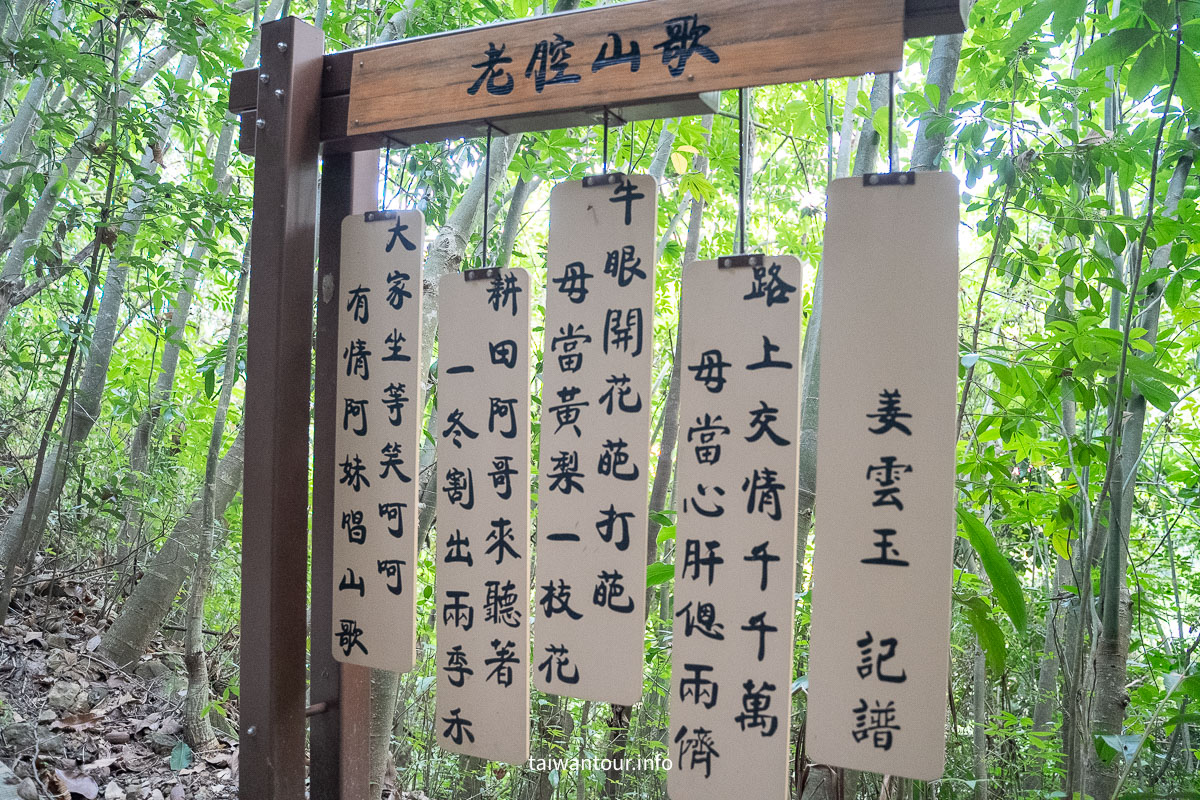 老腔山歌
姜雲玉 記譜
路上交情千千萬
母當心肝兩儕
牛眼開花葩打葩
母當黃梨一枝花
耕田阿哥來聽著
一冬割出兩季禾
大家坐等笑呵呵
有情阿妹唱山歌
taiwantour.info